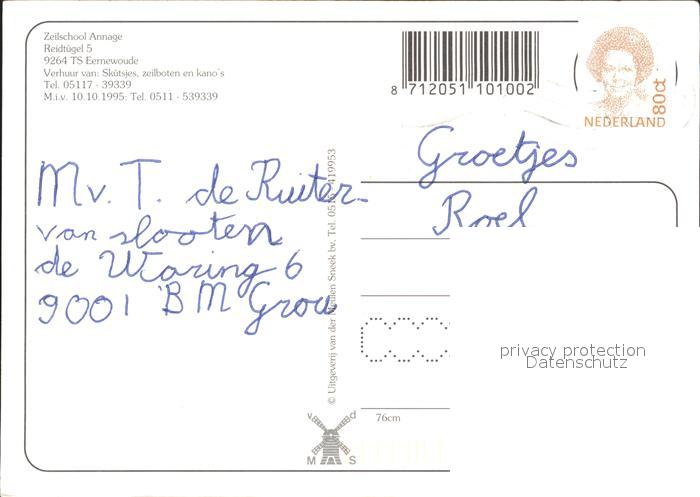 Zeilschool Annage
Reidtûgel 5
9264 TS Eernewoude
Verhuur van: Skûtsjes, zeilboten en kano's
Tel. 05117 - 39339
M.i.v. 10.10.1995: Tel. 0511 - 539339
8 712051 101002
80ct
NEDERLAND
Groetjes
Roel
Mv. T. de Ruiter-
van slooten
de Waring 6
9001 BM Grou
© Uitgeverij van der Meulen Sneek bv. Tel. 0515-419953
privacy protection
Datenschutz
v d
M S
76cm